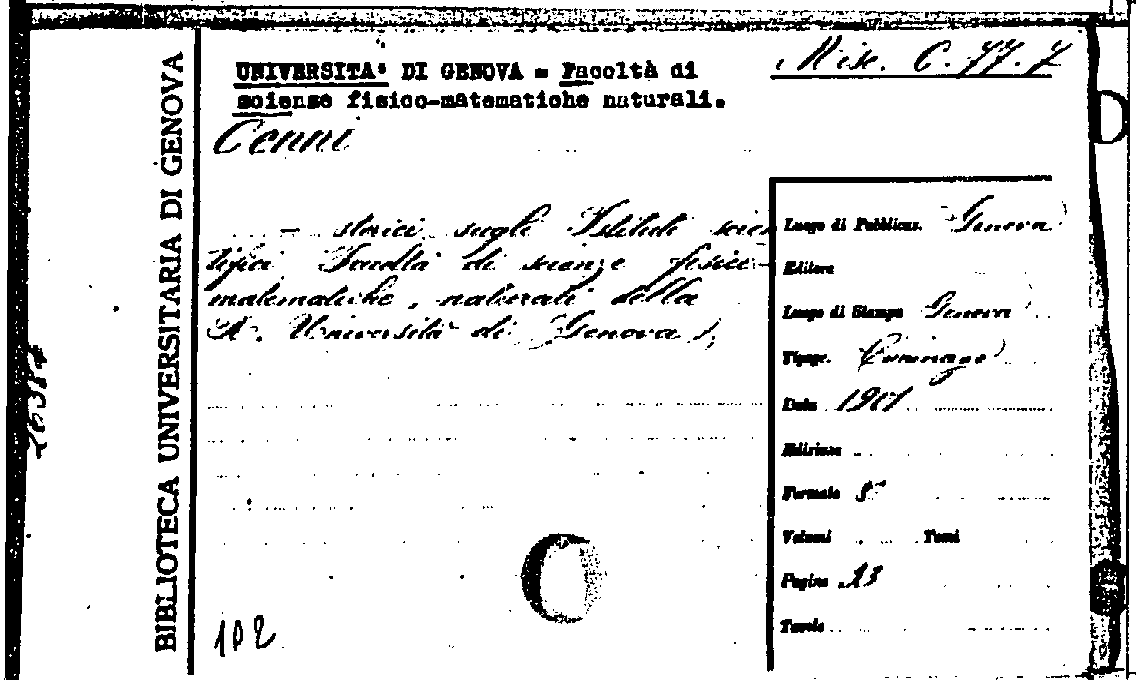 BIBLIOTECA UNIVERSITARIA DI GENOVA
UNIVERSITA' DI GENOVA = Facoltà di
scienze fisico-matematiche naturali.
Misc. C. 77. 7
Cenni
– storici sugli Istituti scien
tifici Facoltà di scienze fisico-
matematiche, naturali della
R. Università di Genova
Luogo di Pubblicaz. Genova
Editore
Luogo di Stampa Genova
Tipogr. Ciminago
Data 1901
Edizione
Formato 8°
Volumi Tomi
Pagine 23
Tavole
102